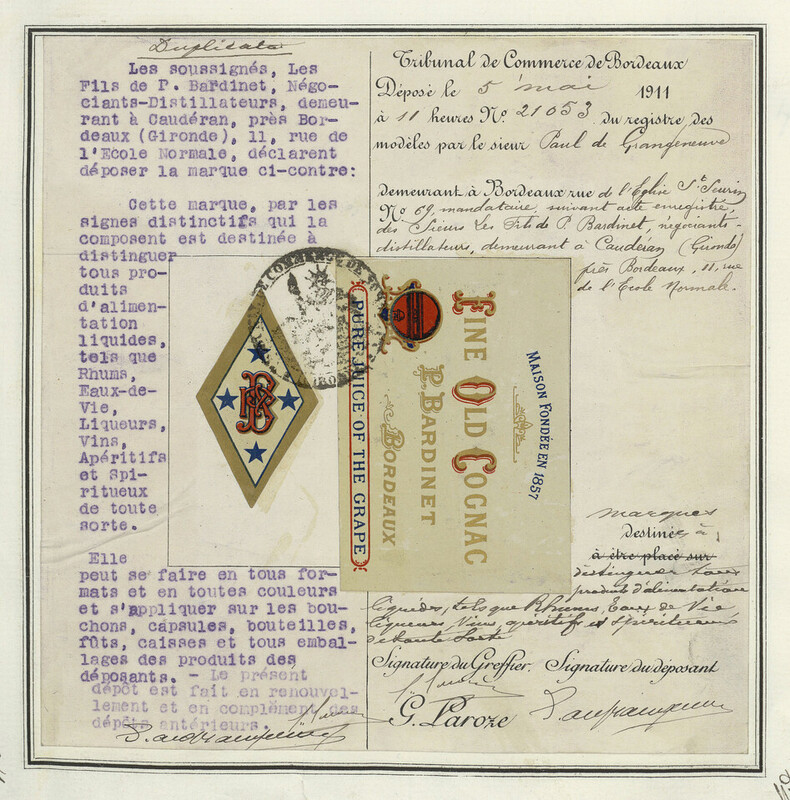 Duplicata
Les soussignés, Les
Fils de P. Bardinet, Négo-
ciants-Distillateurs, demeu-
rant à Caudéran, près Bor-
deaux (Gironde), 11, rue de
l'Ecole Normale, déclarent
déposer la marque ci-contre:
Cette marque, par les
signes distinctifs qui la
composent est destinée à
distinguer
tous pro-
duits
d'alimen-
tation
liquides,
tels que
Rhums,
Eaux-de-
Vie,
Liqueurs,
Vins,
Apéritifs
et Spi-
ritueux
de toute
sorte.
Elle
peut se faire en tous for-
mats et en toutes couleurs
et s'appliquer sur les bou-
chons, capsules, bouteilles,
fûts, caisses et tous embal-
lages des produits des
déposants. - Le présent
dépôt est fait en renouvel-
lement et en complément des
dépôts antérieurs.
Tribunal de Commerce de Bordeaux
Déposé le 5 mai 1911
à 11 heures No 21053 du registre des
modèles par le sieur Paul de Grangeneuve
demeurant à Bordeaux rue de l'Eglise St Seurin
No 69, mandataire, suivant acte enregistré,
des Sieurs Les Fils de P. Bardinet, négociants-
distillateurs, demeurant à Caudéran (Gironde)
près Bordeaux, 11, rue
de l'Ecole Normale.
COMMERCE DE
PURE JUICE OF THE GRAPE
FINE OLD COGNAC
P. BARDINET
BORDEAUX
MAISON FONDÉE EN 1857
marques
destinée à
à être placé sur
distinguer tous
produits d'alimentation
liquides, tels que Rhums, Eaux de Vie
Liqueurs Vins, apéritifs et Spiritueux
de toute Sorte
Signature du Greffier. Signature du déposant
G. Laroze